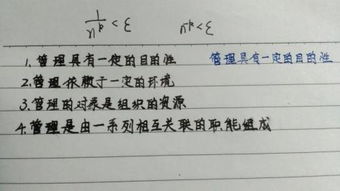 1.管理具有一定的目的性 管理具有一定的目的性
2.管理依于一定的环境
3.管理的对象是组织的资源
4.管理是由一系列相互关联的职能组成